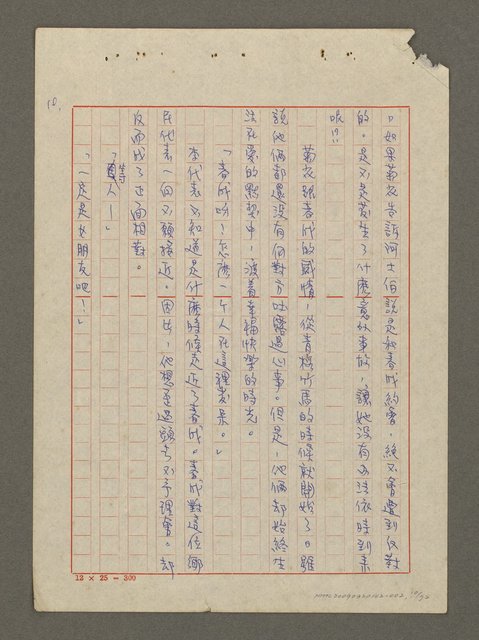 10.
「如果菊花告訴阿土伯說是和春成約會，絕不會遭到反對
的。是不是發生了什麼意外事故，讓她沒有辦法依時到來
呢！？
菊花跟春成的感情，從青梅竹馬的時候就開始了。雖
說他倆都還沒有向對方吐露過心事。但是，他倆却始終生
活在愛的默契中，渡着幸福快樂的時光。
「春成呀！怎麼一个人在這裡發呆。」
李代表不知道是什麼時候走近了春成。春成對這位鄉
民代表一向不願接近。因此，他想
反而成了正面相對。
「等人！」
「一定是女朋友吧！」
12 × 25 = 300
10/52